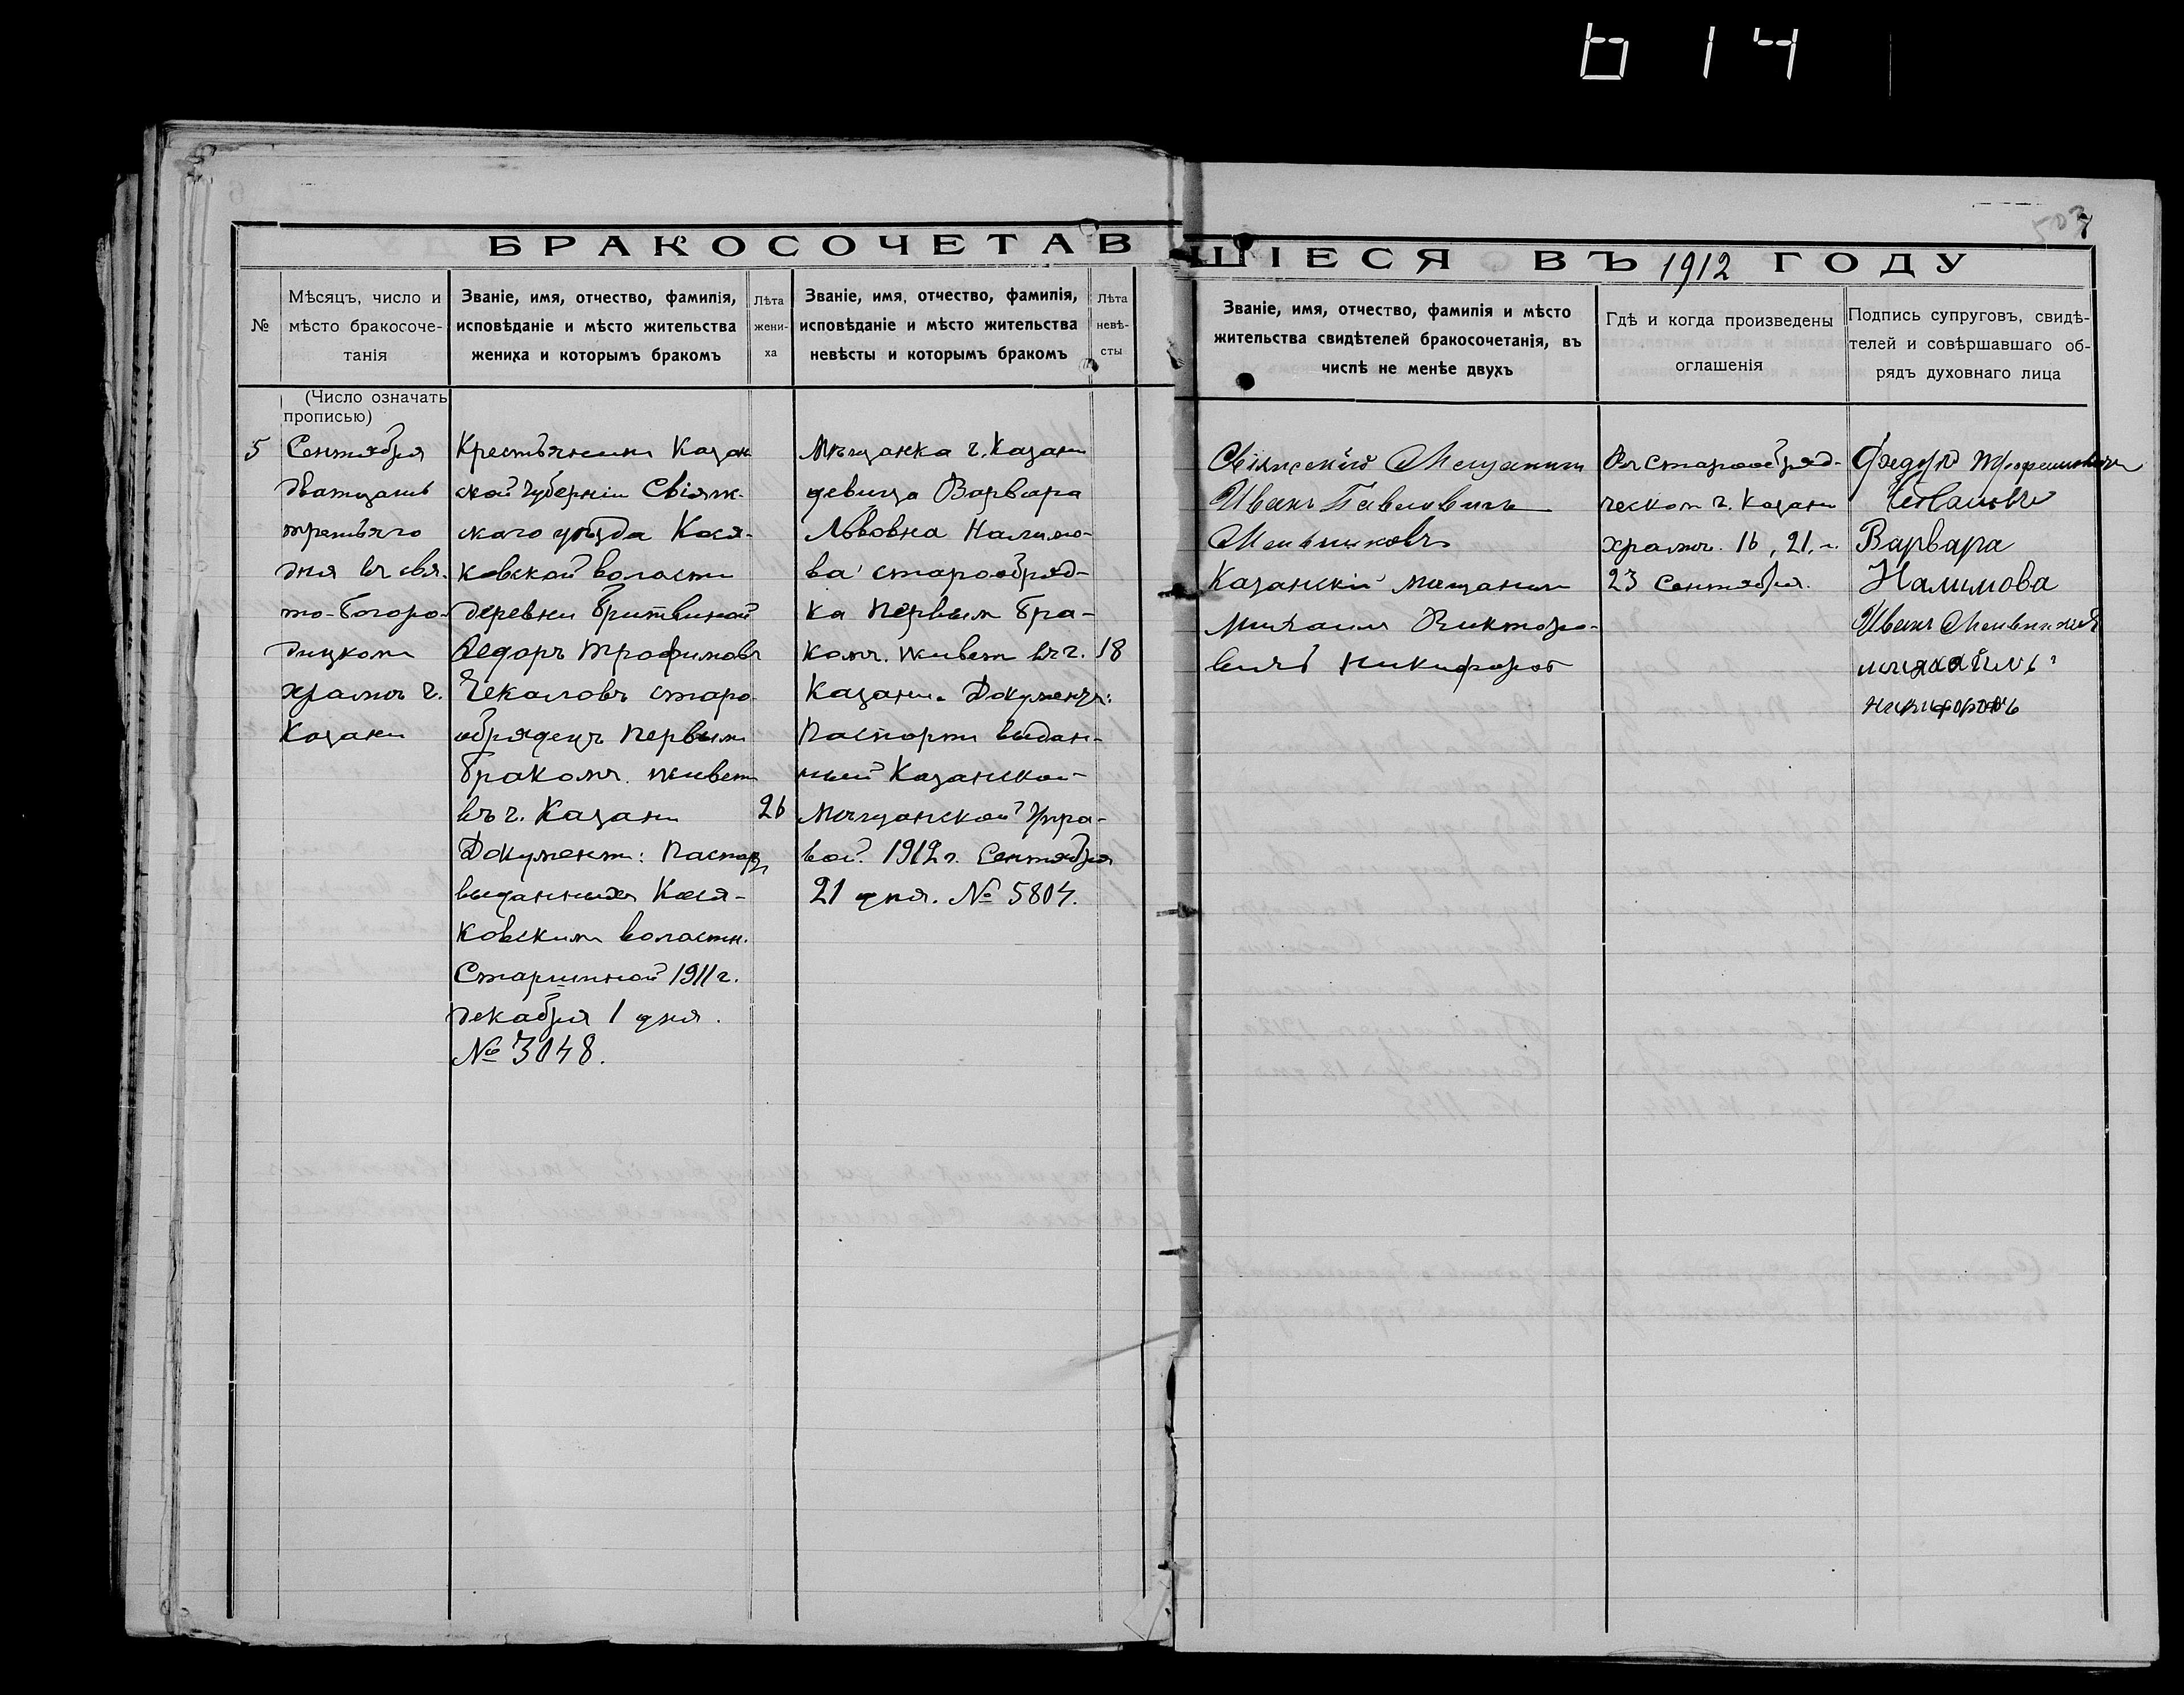 614
503
7
БРАКОСОЧЕТАВШІЕСЯ ВЪ 1912 ГОДУ
№
Мѣсяцъ, число и
мѣсто бракосоче-
танія
Званіе, имя, отчество, фамилія,
исповѣданіе и мѣсто жительства
жениха и которымъ бракомъ
Лѣта
жени-
ха
Званіе, имя, отчество, фамилія,
исповѣданіе и мѣсто жительства
невѣсты и которымъ бракомъ
Лѣта
невѣ-
сты
Званіе, имя, отчество, фамилія и мѣсто
жительства свидѣтелей бракосочетанія, въ
числѣ не менѣе двухъ
Гдѣ и когда произведены
оглашенія
Подпись супруговъ, свидѣ-
телей и совѣршавшаго об-
рядъ духовнаго лица
(Число означать
прописью)
5
Сентября
дватцать
третьяго
дня въ свя-
то-Богоро-
дицком
храмѣ г.
Казани
Крестьянинъ Казан
ской губерніи Свіяж-
скаго уѣзда Кося-
ковской волости
деревни Бритвиной
Ѳедоръ Трофимовъ
Чекаловъ старо-
обрядецъ первым
бракомъ. живет
въ г. Казани
26
Документ: Паспор
выданных Кося-
ковским волостн.
Старшиной 1911 г.
декабря 1 дня.
№ 3048.
Мѣщанка г. Казани
девица Варвара
Львовна Налимо-
ва старообряд-
ка первым бра-
комъ. живет въ г.
18
Казани. Документъ:
Паспорт выдан-
ный Казанской
Мѣщанской Упра-
вой. 1912 г. Сентября
21 дня. № 5804.
Свіяжскій Мещанин
Иванъ Павловичъ
Меньшиковъ
Казанскій мещанин
Михаил Викторо-
вичъ Никифоров
Въ старообряд-
ческом г. Казани
храмѣ. 16, 21, и
23 Сентября.
Федор Трофимович
Чекаловъ
Варвара
Налимова
Иванъ Меньшиковъ
михаилъ
никифоровъ